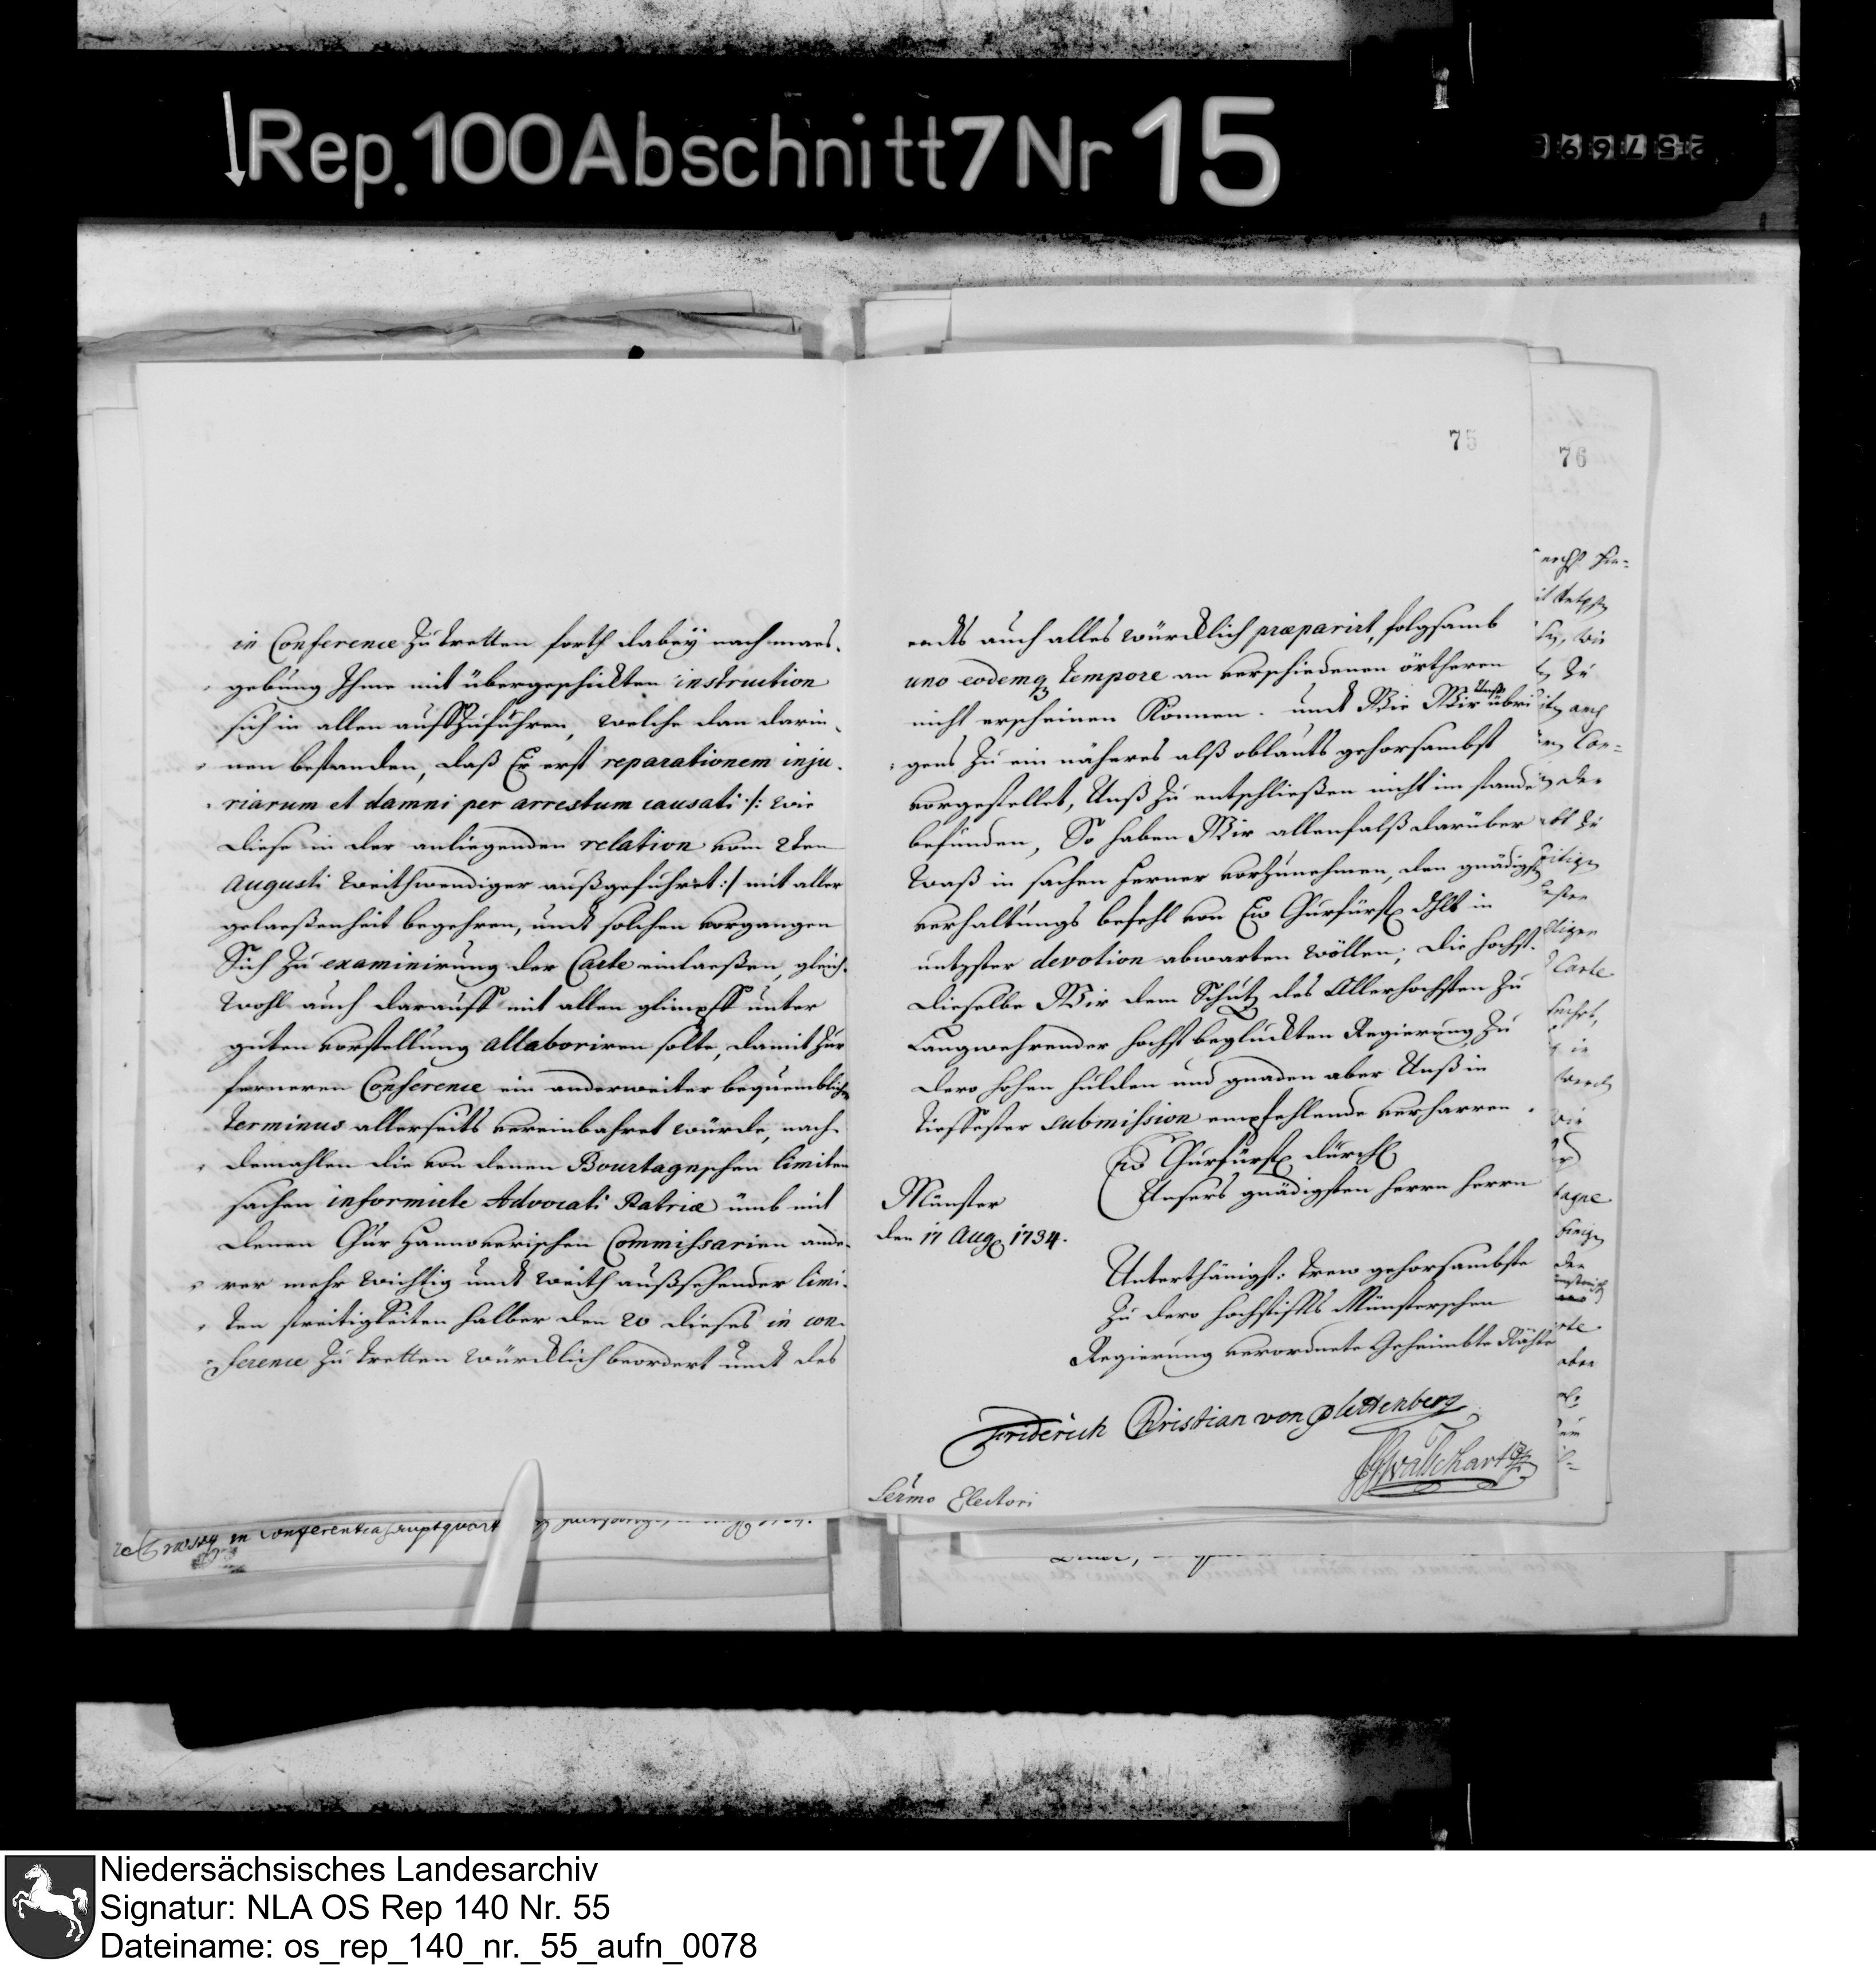 Rep. 100 Abschnitt 7 Nr 15
in Conference zu tretten forth dabeÿ nach maas-
gebung Ihme mit übergeschickten instruction
sich in allen auffzuführen, welche dan darin-
nen bestanden, daß Er erst reparationem inju-
riarum et damni per arrestum causati /: wie
diese in der anliegenden relation vom 2ten
Augusti weithwendiger außgeführet :/ mit aller
gelaeßenheit begehren, undt solchen vorgangen
Sich zu examinirung der Carte einlaeßen, gleich-
wohl auch darauff mit allen glimpff unter
guten vorstellung allaboriren solte, damit zur
ferneren Conference ein anderweiter bequemblicher
terminus allerseits vereinbahret würde, nach-
demahlen die von denen Bourtagnschen limiten
sachen informirte Advocati Patriæ umb mit
denen Chur Hannoverischen Commissarien ande-
rer mehr wichtig undt weith außsehender limi-
ten streitigkeiten halber den 20 dieses in con-
ference zu tretten würcklich beordert undt des
75
endts auch alles würcklich præparirt, folgsamb
uno eodemq tempore an verschiedenen örtheren
nicht erscheinen können. undt Wie Wir Unß übri-
gens zu ein näheres alß oblauts gehorsambst
vorgestellet, Unß zu entschließen nicht im stande
befunden, So haben Wir allenfalß darüber
waß in sachen ferner vorzunehmen, den gnädigst
verhaltungs befehl von Ew Churfürstl dhlt in
untgster devotion abwarten wöllen; die höchst-
dieselbe Wir dem Schutz des Allerhöchsten zu
Langwehrender höchst beglückten Regierung zu
dero hohen hulden und gnaden aber Unß in
tieffester submission empfehlende verharren.
Ew Churfürstl durchl
Unsers gnädigsten herrn herrn
Münster
den 17 Aug 1734.
Unterthänigst: trew gehorsambste
Zu dero hochstiffts Münsterschen
Regierung verordnete Geheimbte Räthe
Friderich Christian von Plettenberg
Sermo Electori
76
Carte
tagne
Niedersächsisches Landesarchiv
Signatur: NLA OS Rep 140 Nr. 55
Dateiname: os_rep_140_nr._55_aufn_0078